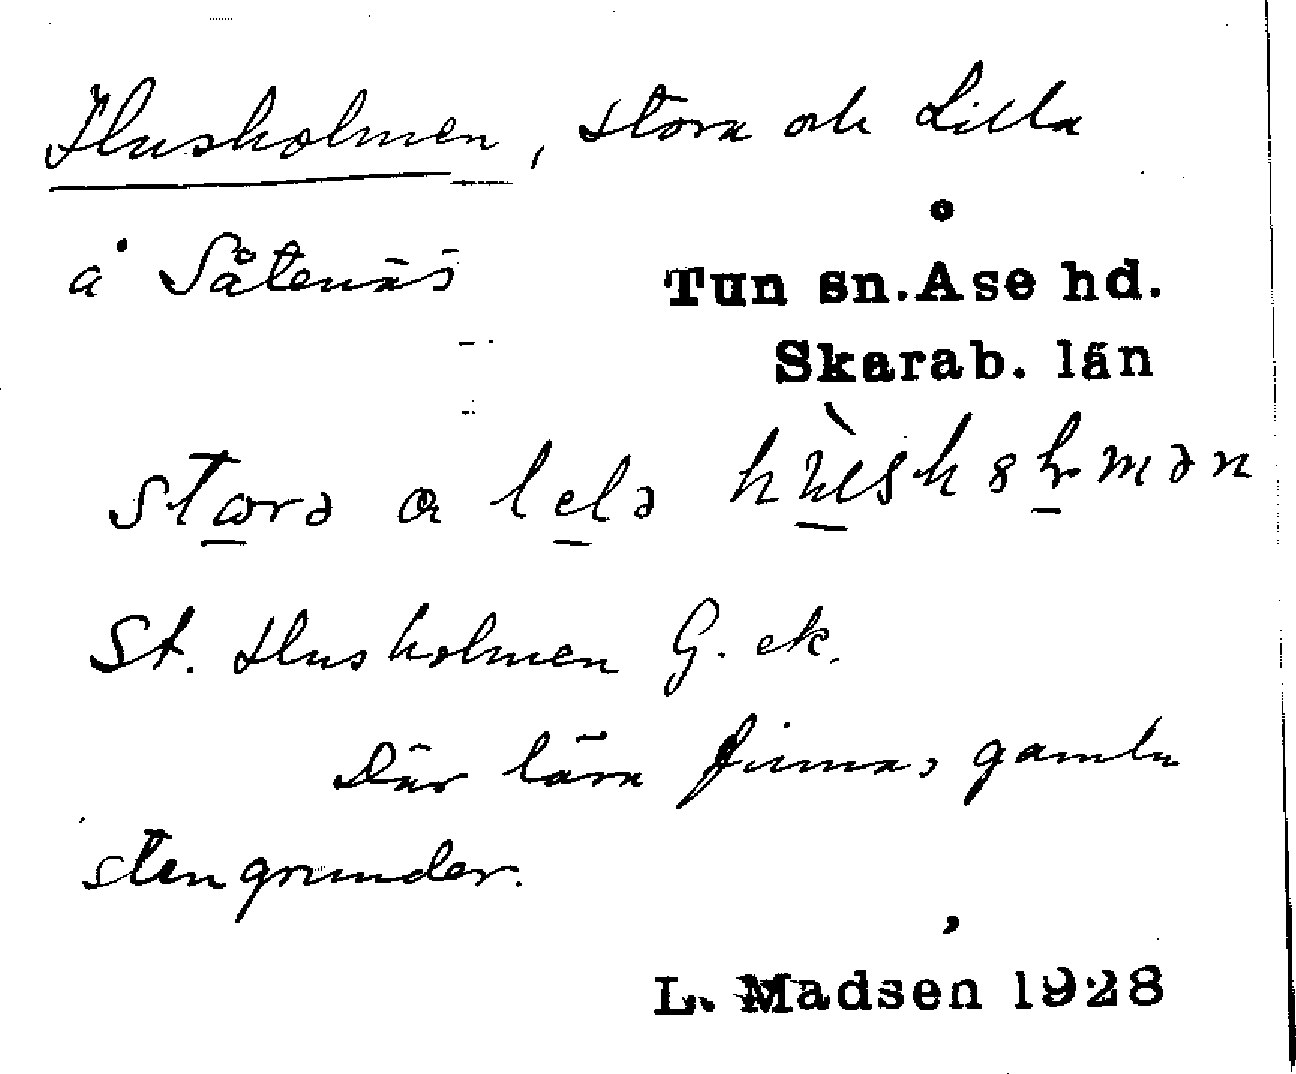 Husholmen, Stora och Lilla
å Såtenäs
Tun sn. Åse hd.
Skarab. län
St. Husholmen G. ek.
Där lära finnas gamla
stengrunder.
L. Madsen 1928